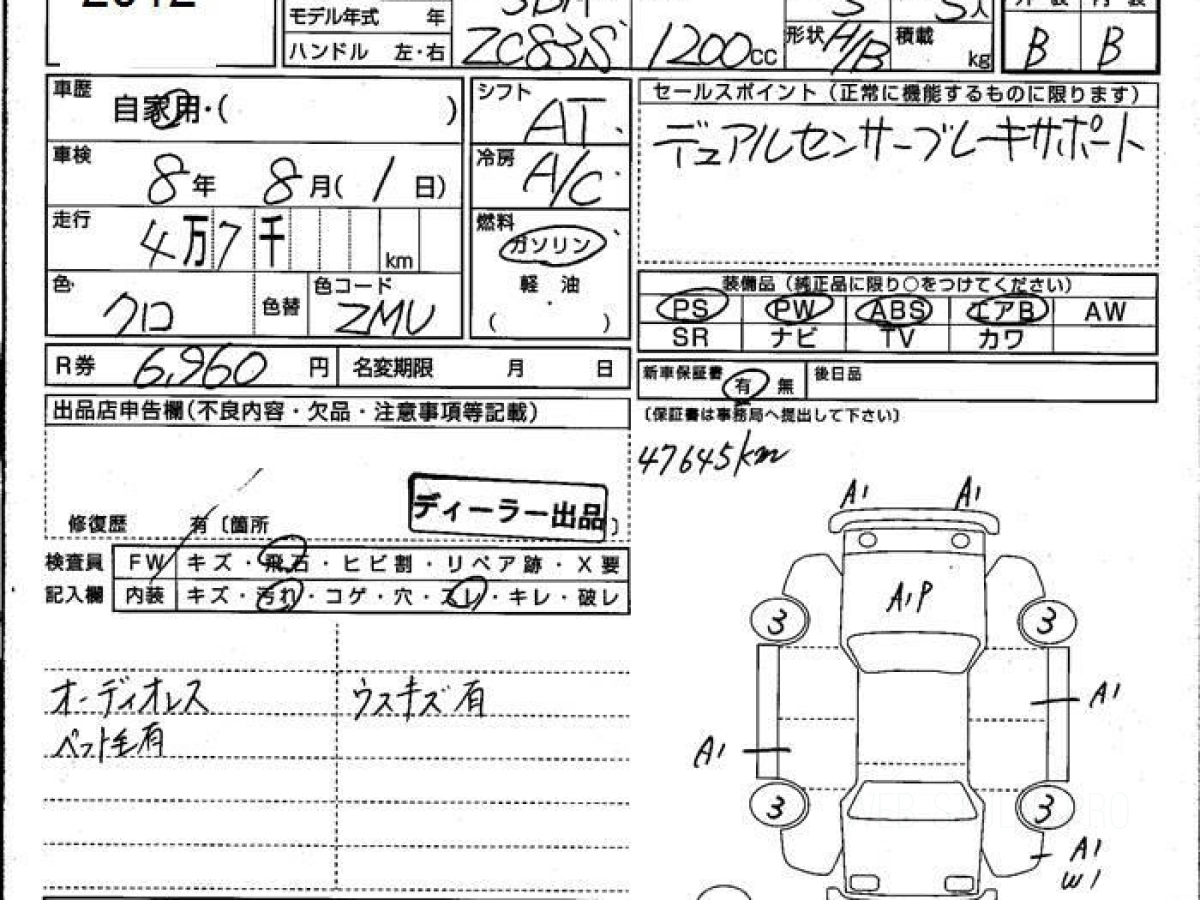 2012
モデル年式 年
ハンドル 左・右
ZC83S
1200cc
形状 H/B
積載 kg
5人
外装 内装
B B
車歴 自家用・( )
車検 8年 8月(1日)
走行 4万7千 km
色 クロ
色替
色コード ZMU
シフト AT
冷房 A/C
燃料 ガソリン
軽油
( )
セールスポイント(正常に機能するものに限ります)
デュアルセンサーブレーキサポート
装備品(純正品に限り○をつけてください)
PS PW ABS エアB AW
SR ナビ TV カワ
R券 6,960円
名変期限 月 日
新車保証書 有 無
後日品
〔保証書は事務局へ提出して下さい〕
出品店申告欄(不良内容・欠品・注意事項等記載)
ディーラー出品
修復歴 有〔箇所 〕
検査員記入欄
FW キズ・飛石・ヒビ割・リペア跡・X要
内装 キズ・汚れ・コゲ・穴・スレ・キレ・破レ
オーディオレス
ペット毛有
ウスキズ有
47645km
A1 A1
A1P
3 3
A1
A1
3 3
A1
W1